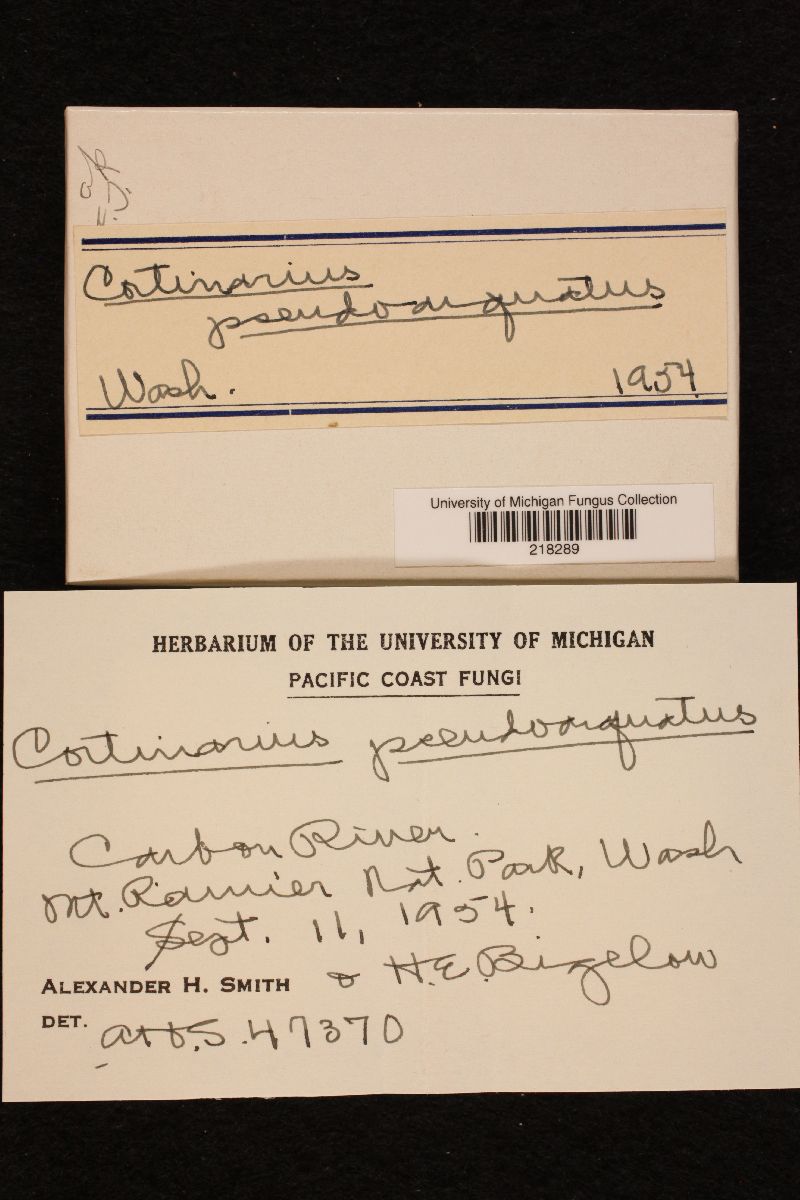 Cortinarius
pseudoarquatus
Wash. 1954
University of Michigan Fungus Collection
218289
HERBARIUM OF THE UNIVERSITY OF MICHIGAN
PACIFIC COAST FUNGI
Cortinarius pseudoarquatus
Carbon River.
Mt. Rainier Nat. Park, Wash
Sept. 11, 1954.
ALEXANDER H. SMITH & H.E. Bigelow
DET. AHS. 47370